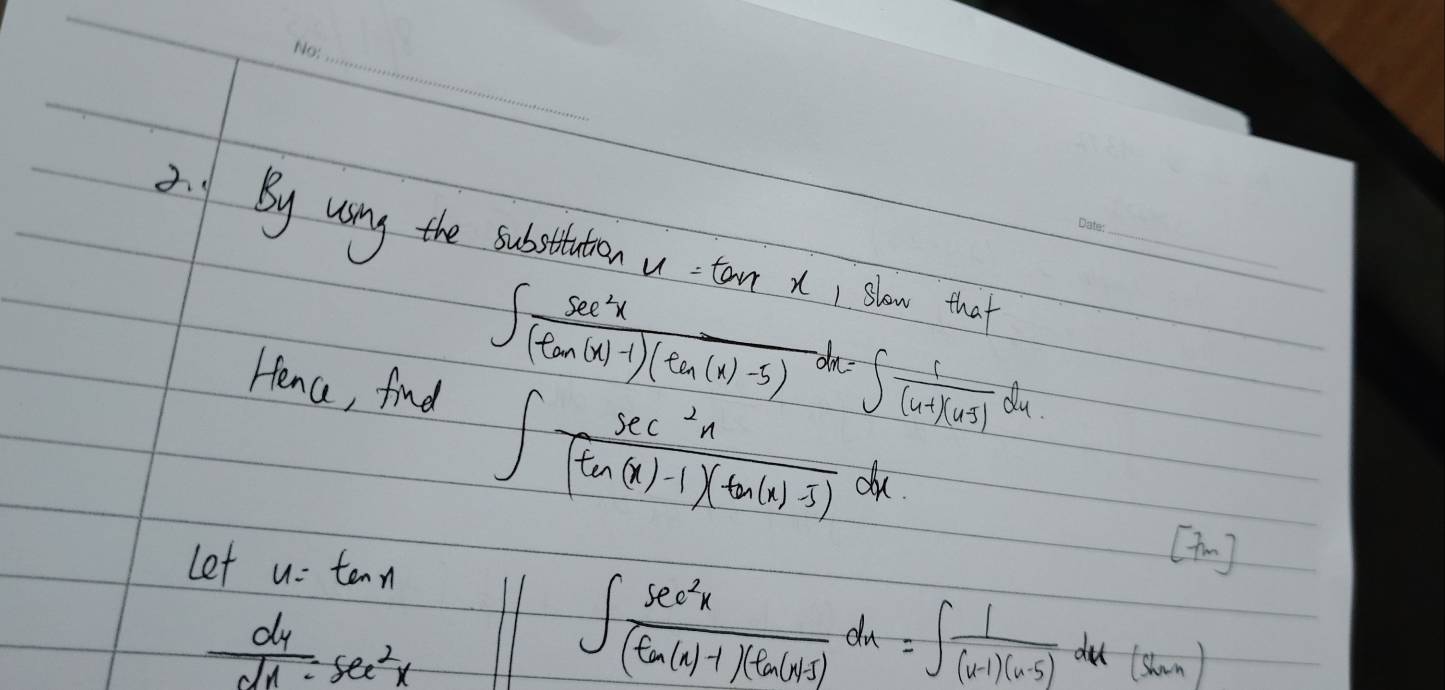 No:
Date:
2. By using the substitution u = tan x, show that
∫ sec²x / (tan(x) -1)(tan(x) -5) dx = ∫ 1 / (u-1)(u-5) du.
Hence, find ∫ sec²x / (tan(x) -1)(tan(x) -5) dx.
[7m]
Let u = tan x
du/dx = sec²x
∫ sec²x / (tan(x) -1)(tan(x)-5) dx = ∫ 1 / (u-1)(u-5) du (shown)